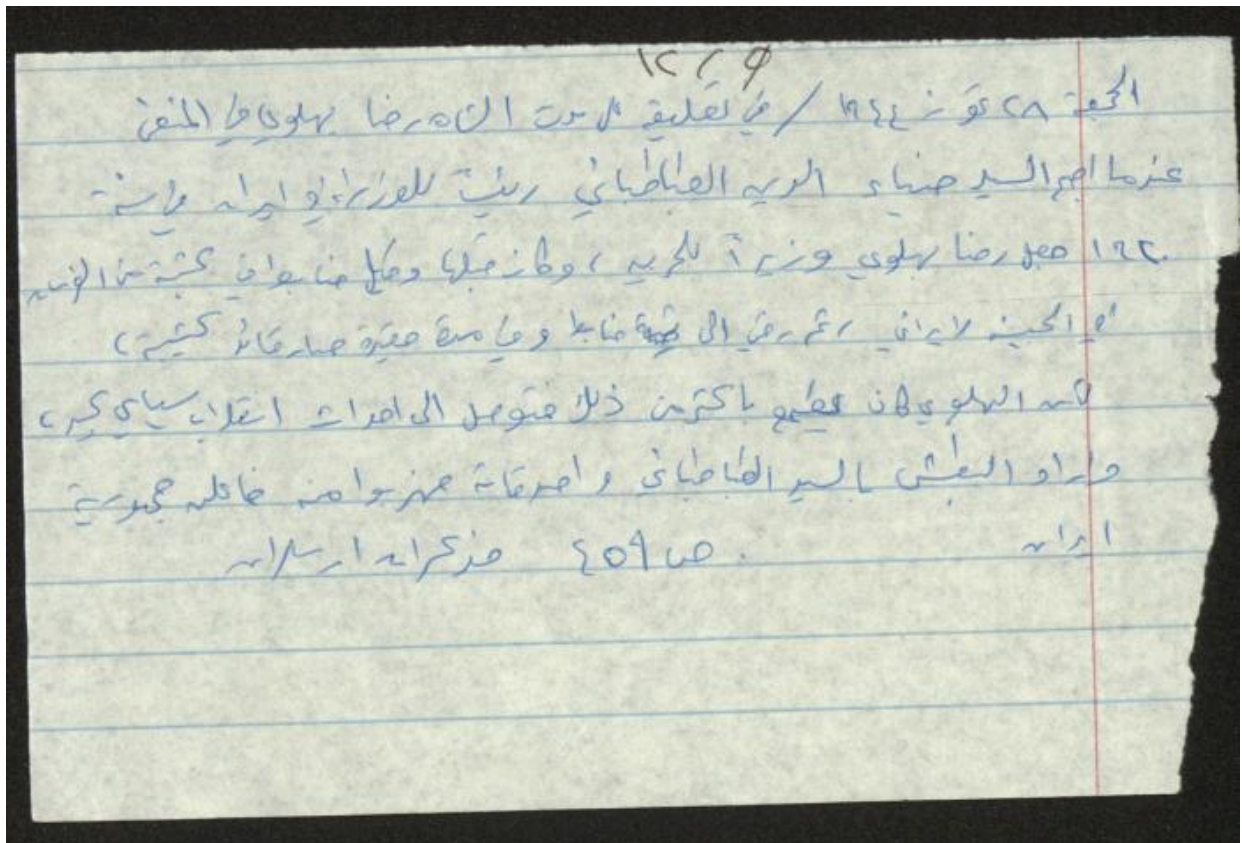 ١٢٢٩
الجمعة ٢٨ تموز ١٩٤٤ / في تعليقه على موت الشاه رضا بهلوي في المنفى
عندما اصبح السيد ضياء الدين الطباطبائي رئيساً للوزراء في ايران في سنة
١٩٢٠ جعل رضا بهلوي وزيراً للحربية، وكان قبلها وكيل ضابط في كتيبة من الفرسان
في الجيش الايراني، ثم رقي الى ضابط وفي مدة قصيرة صار قائد كتيبة،
لكن البهلوي كان يطمع باكثر من ذلك فتوصل الى احداث انقلاب سياسي كبير،
واراد البطش بالسيد الطباطبائي واصدقائه فهربوا منه فاعلن جمهورية
ايران . ص ٤٥٩ مذكرات ارسلان